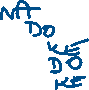 NA
DO
KE
DON
KA